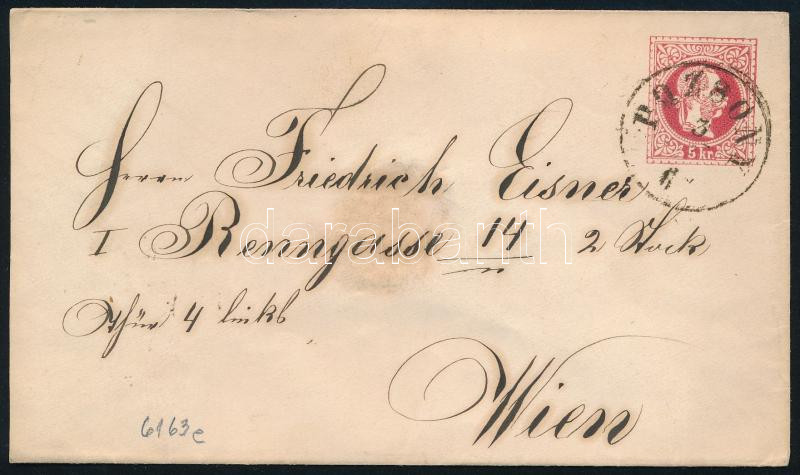 POZSONY
3
6
5 kr.
Herrn Friedrich Eisner
I Renngasse 14 2 Stock
Thür 4 links
Wien
6163e
darabanth